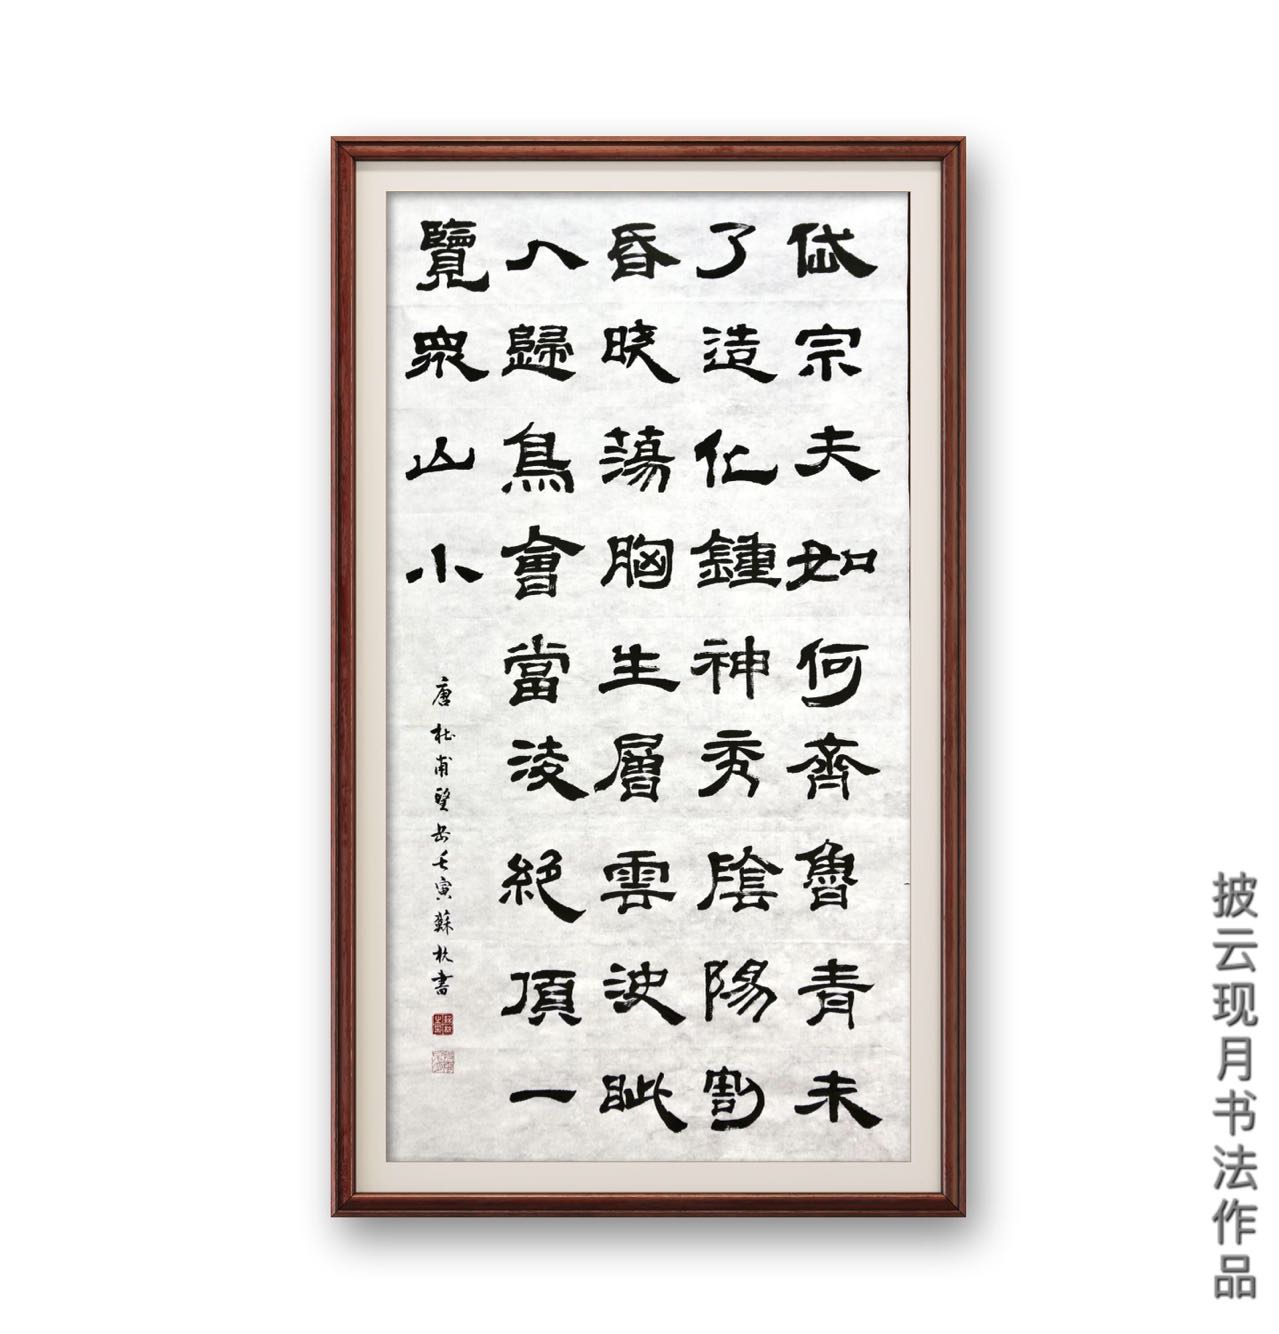 岱宗夫如何齊魯青未
了造化鍾神秀陰陽割
昏曉蕩胸生層雲決眦
入歸鳥會當淩絕頂一
覽眾山小
唐杜甫望岳壬寅蘇書
披云现月书法作品